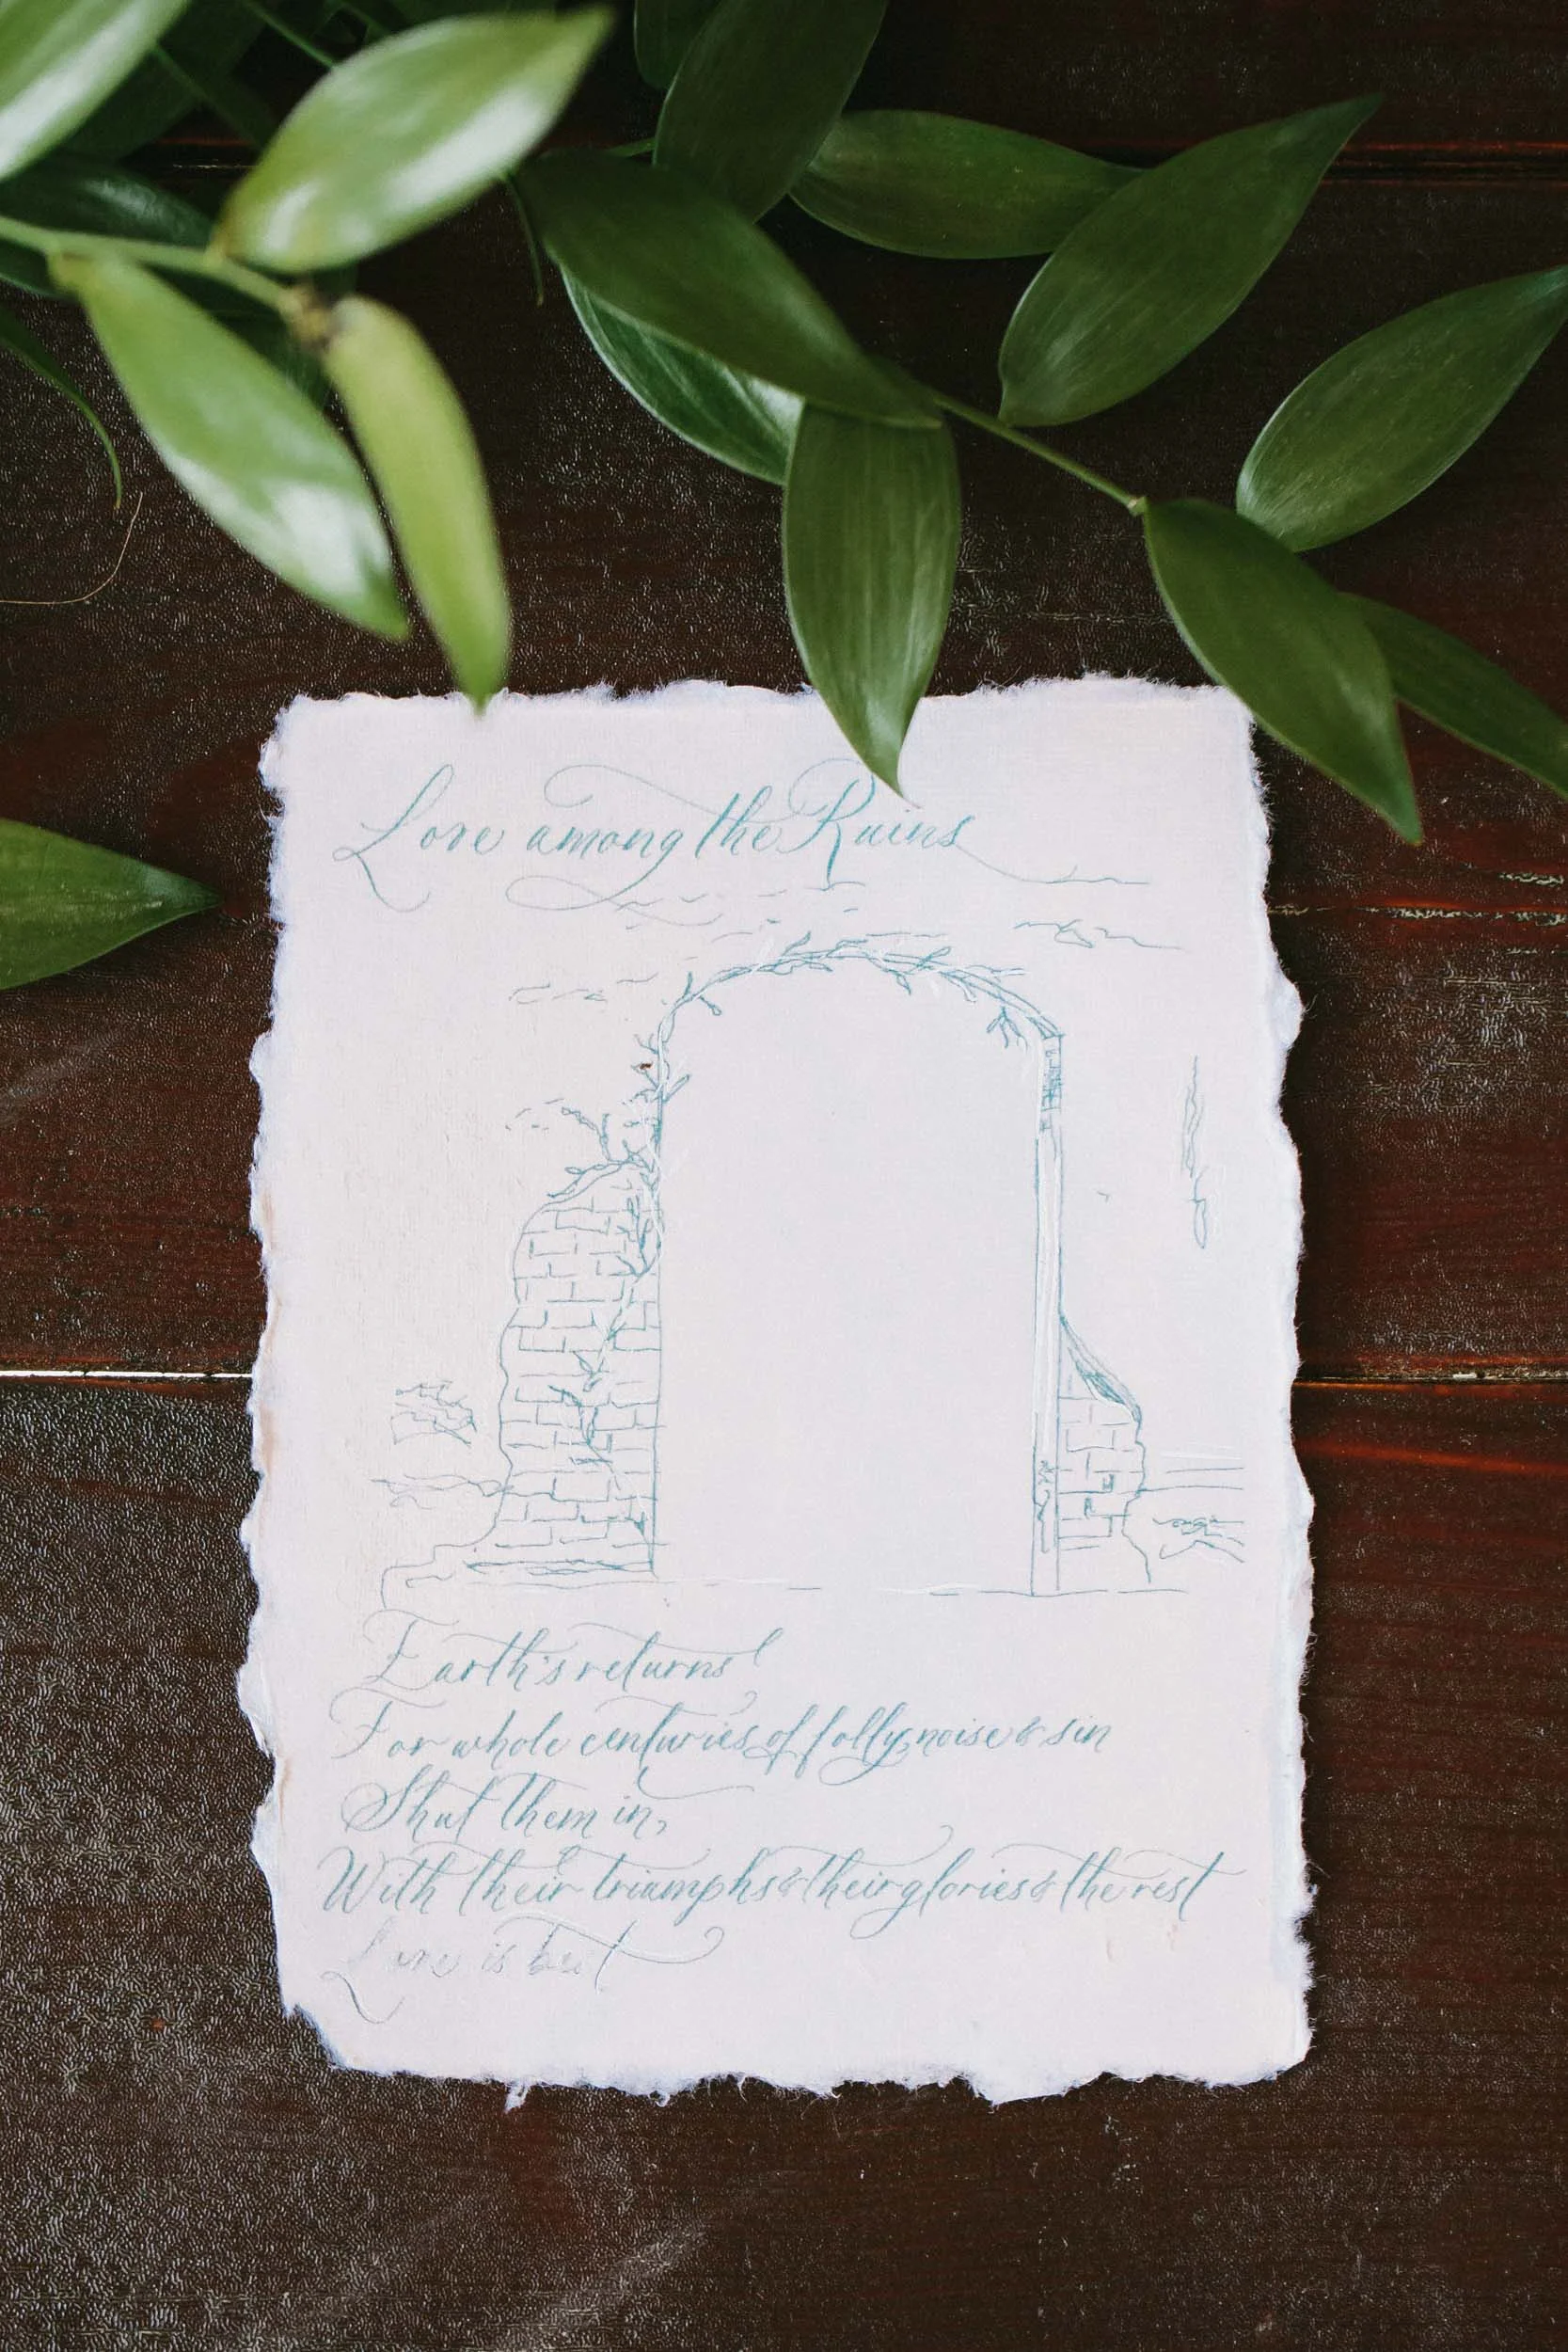 Love among the Ruins
Earth's returns
For whole centuries of folly, noise & sin
Shut them in,
With their triumphs & their glories & the rest
Love is but